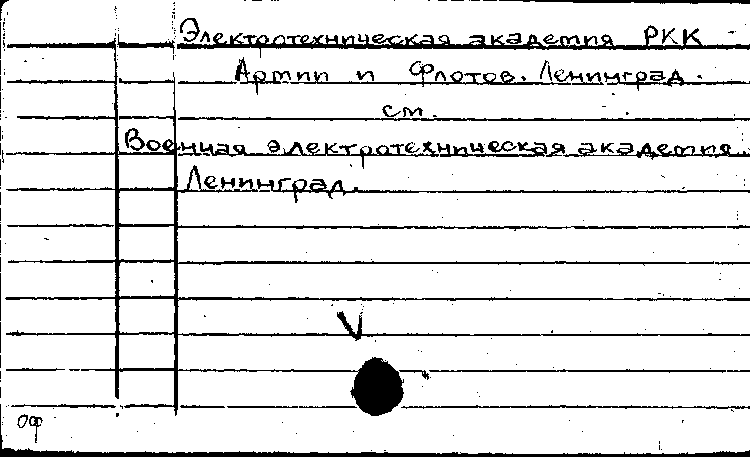 Электротехническая академия РКК
Армии и Флотов. Ленинград.
см.
Военная электротехническая академия.
Ленинград.
V
Оф